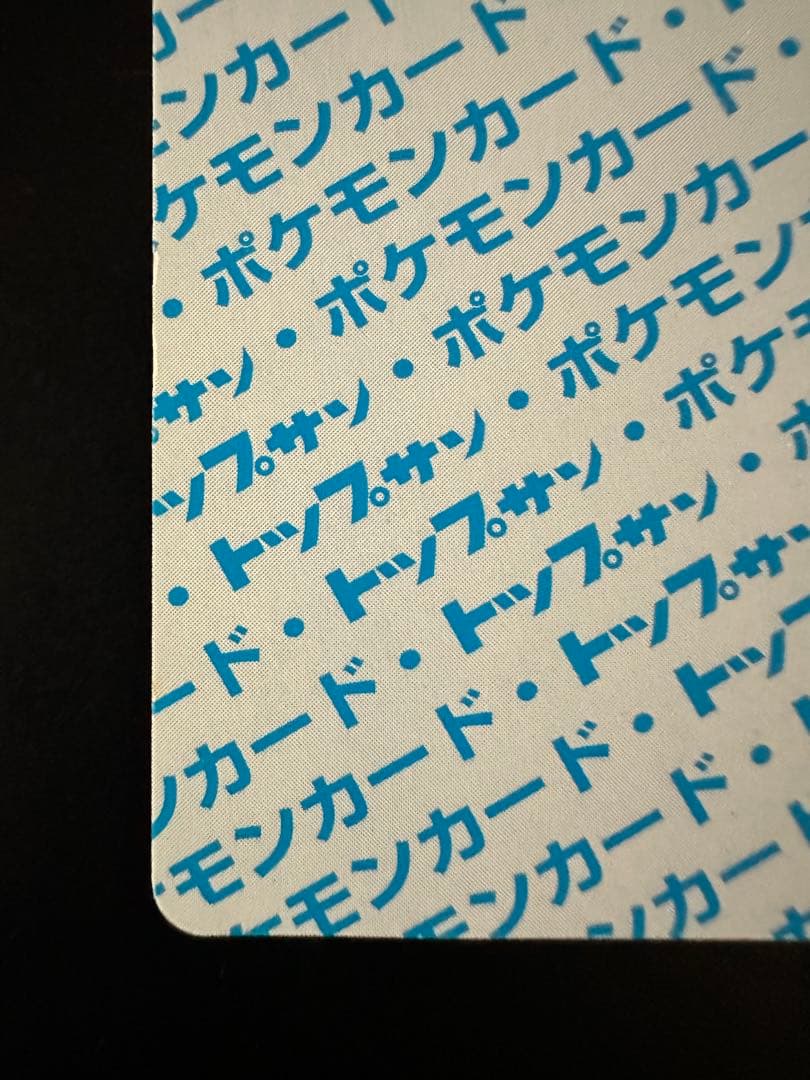 ンカー
ケモンカード
・ポケモンカード・
サン・ポケモンカード・
ップサン・ポケモンカー
・トップサン・ポケモン
ード・トップサン・ポケ
カード・トップサン・
モンカード・トップサン
モンカード・トッ
モンカード・
カー